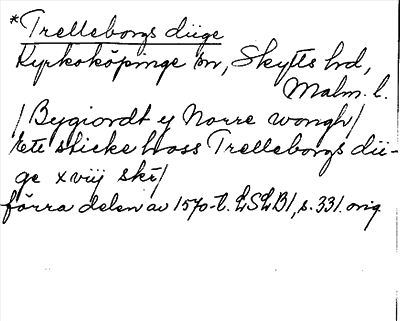 *Trelleborgs diige
Kyrkoköpinge sn, Skytts hd,
Malm. l.
/Bygiordt y Norre wongh/
/ett sticke hoss Trelleborgs dii-
ge x viij ske/
förra delen av 1570-t. LSLB1, s. 331. orig.